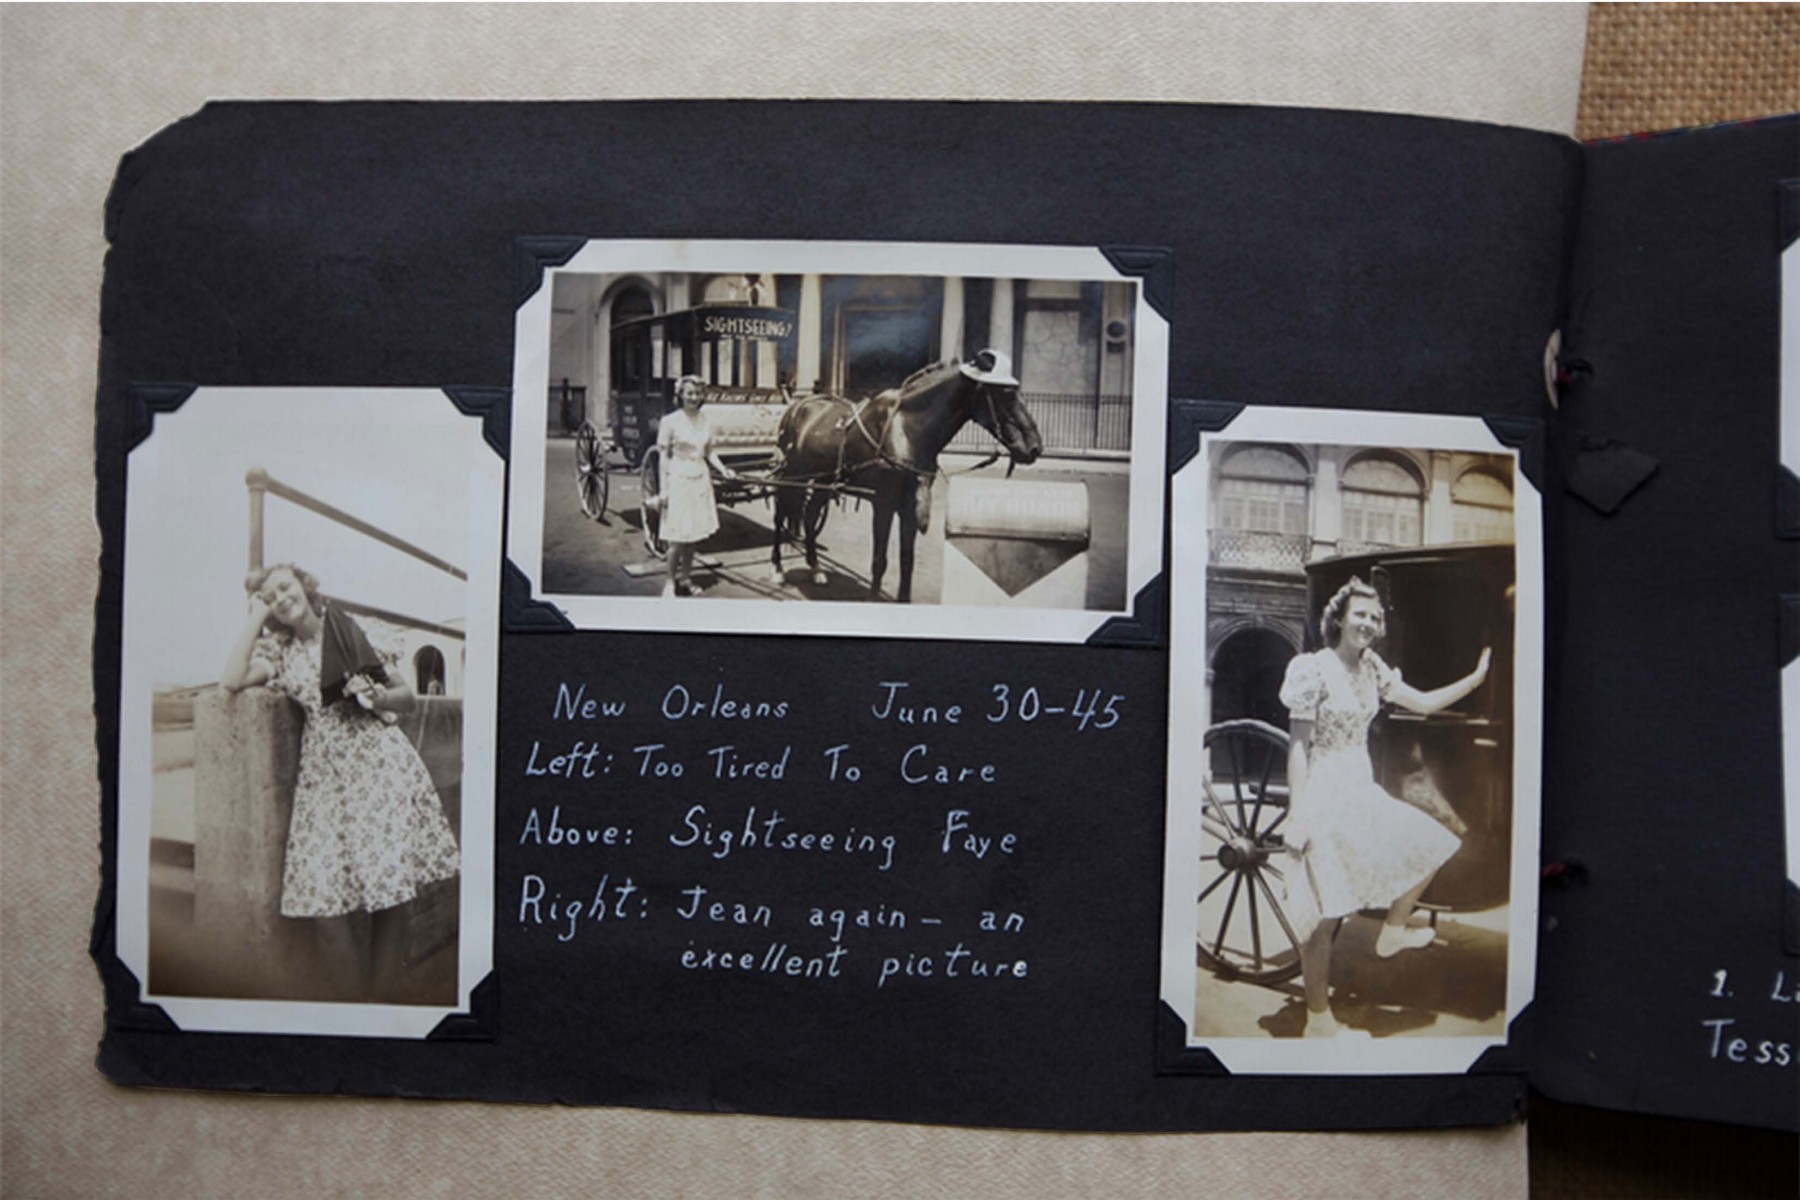 SIGHTSEEING!
New Orleans June 30-45
Left: Too Tired To Care
Above: Sightseeing Faye
Right: Jean again - an
excellent picture
1. L
Tess